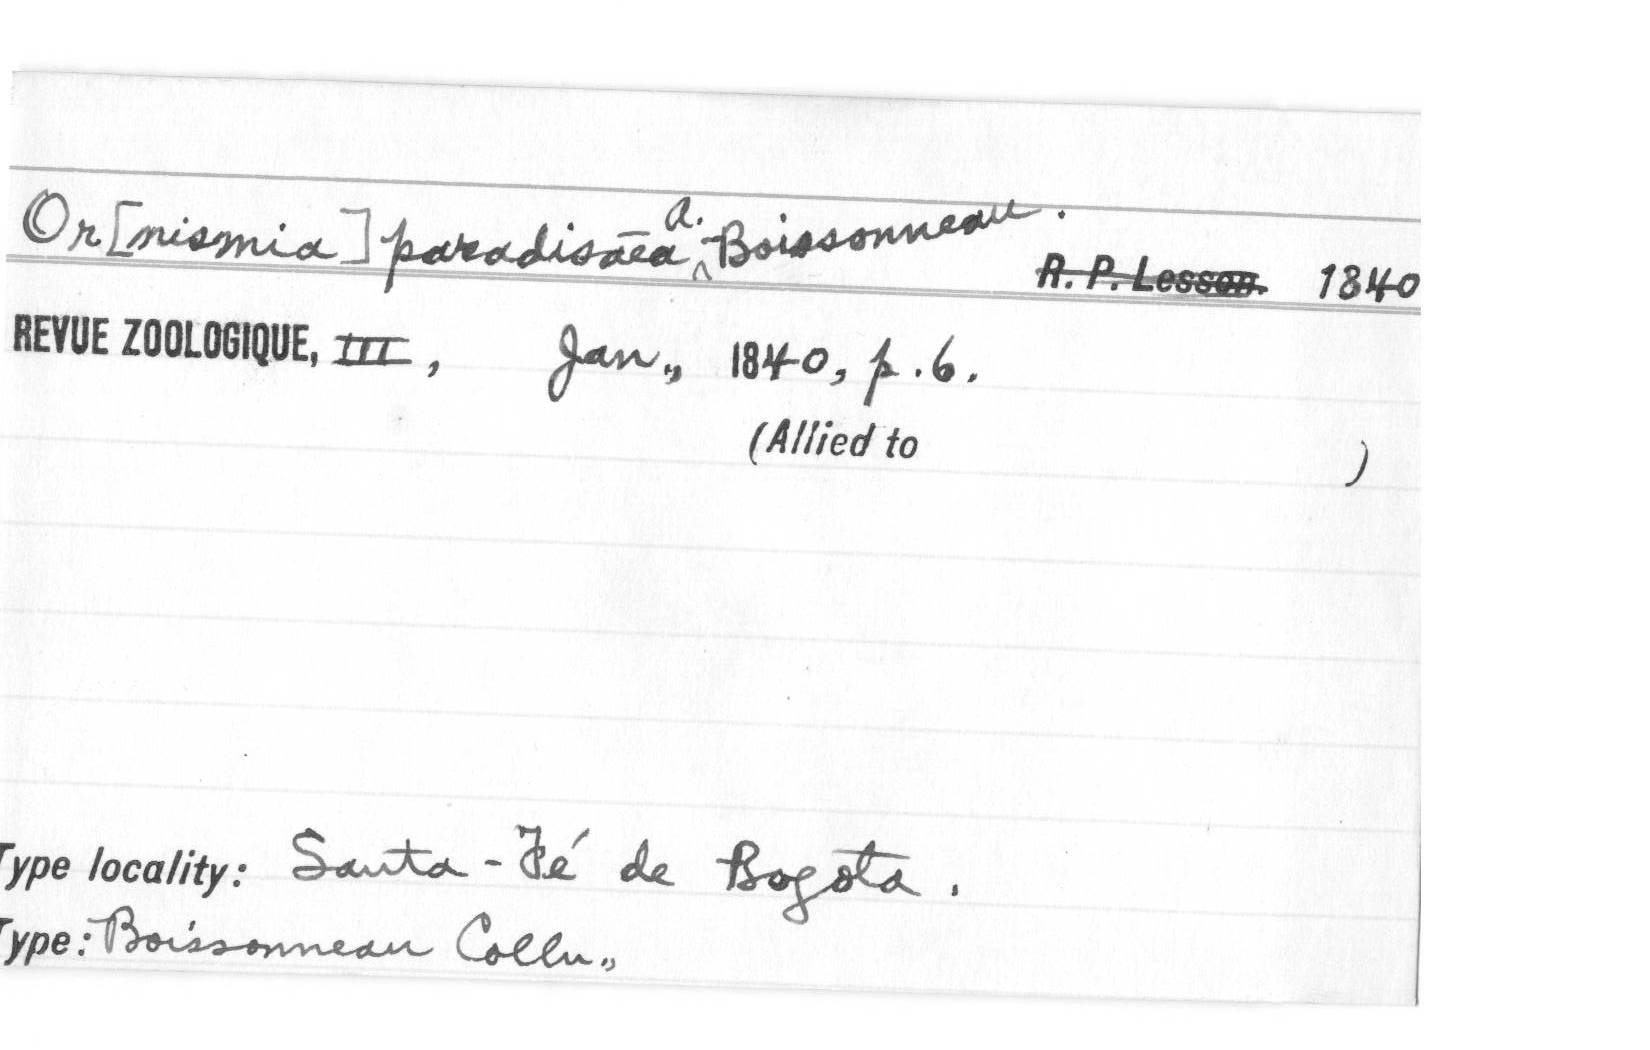 Or[nismia] paradisaea A. Boissonneau.
R. P. Lesson. 1840
REVUE ZOOLOGIQUE, III, Jan., 1840, p. 6.
(Allied to )
Type locality: Santa-Fé de Bogota.
Type: Boissonneau Colln.,